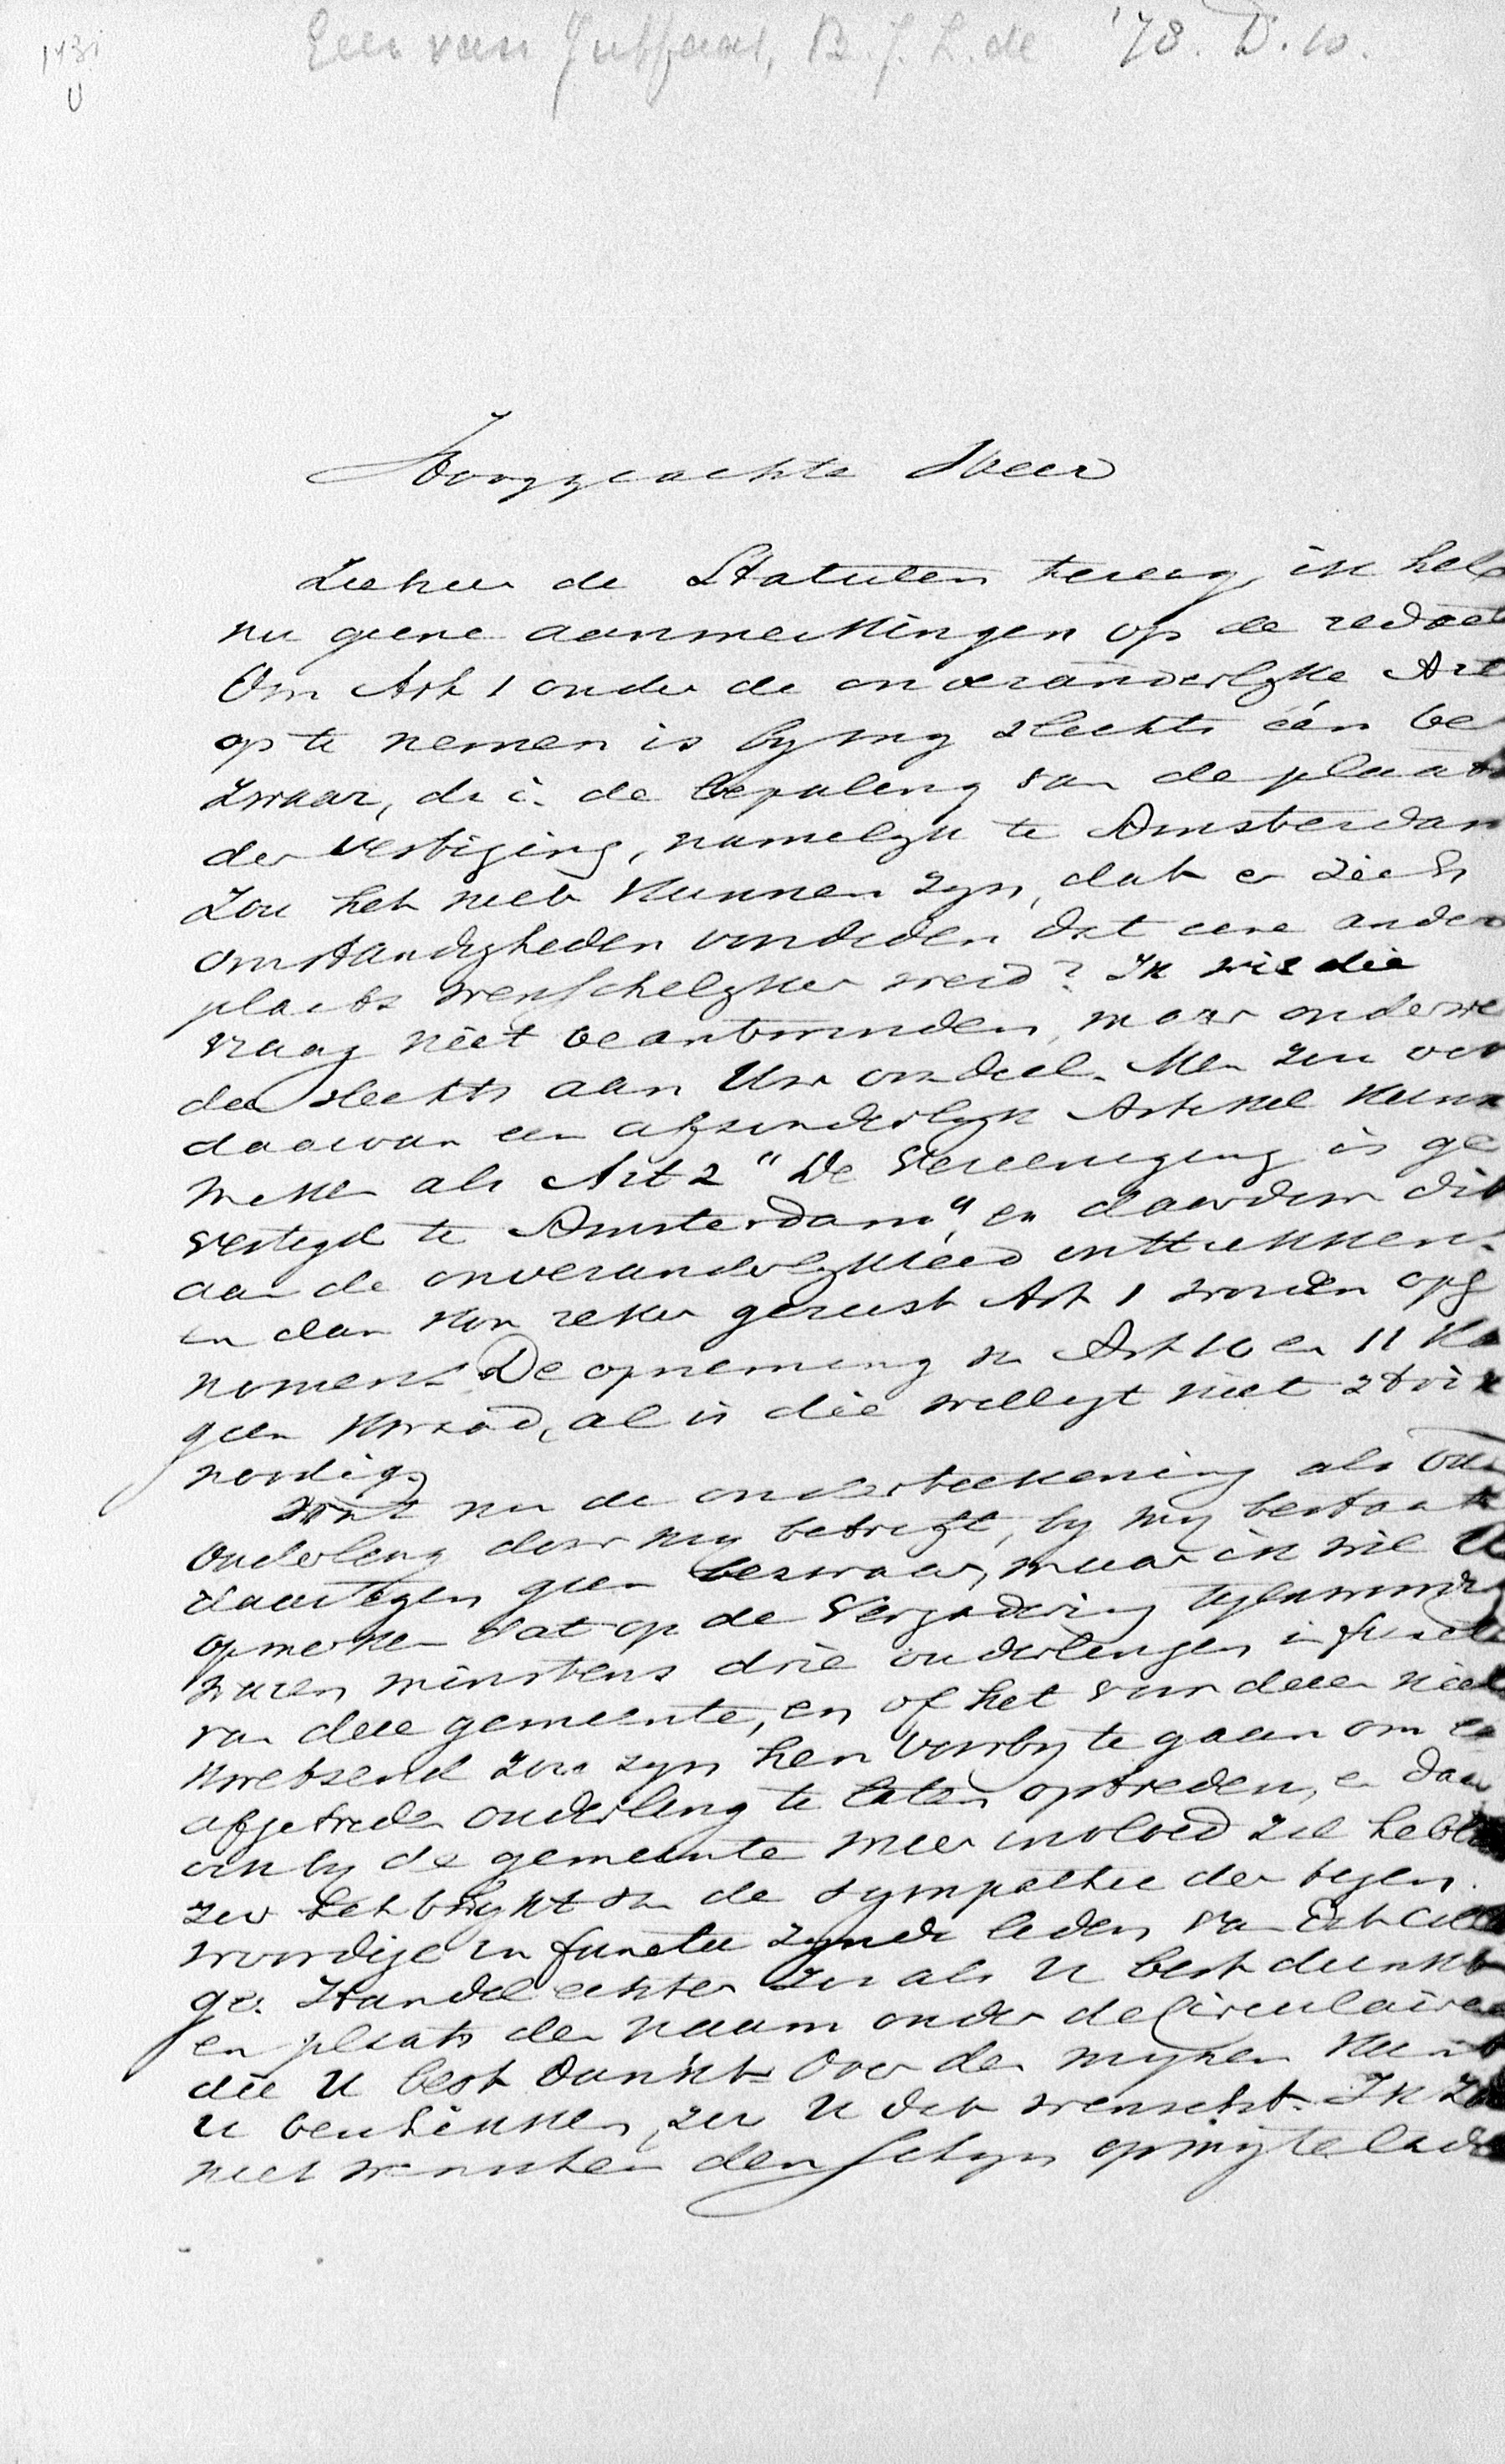 1431
U
Geer van Jutfaas, B. J. L. de '78. D. 10.
Hooggeachte Heer
Ziehier de Statuten terug, ik heb
nu geene aanmerkingen op de redact
Om Art 1 onder de onveranderlyke Art
op te nemen is by my slechts één be
zwaar, d. i. de bepaling van de plaats
der vestiging, namelyk te Amsterdam
Zou het niet kunnen zyn, dat er zich
omstandigheden voordeden dat eene andere
plaats wenschelyker werd? Ik wil die
vraag niet beantwoorden, maar onderwe
den slechts aan Uw oordeel. Men zou ook
daarvan een afzonderlyk Artikel kunn
maken als Art 2 "De Vereeniging is ge
vestigd te Amsterdam," en daardoor dit
aan de onveranderlykheid onttrekken.
en dan kon zeker gerust Art 1 worden opg
nomen. De opneming van Art 10 en 11 ka
geen kwaad, al is die wellicht niet strik
noodig.
Wat nu de onderteekening als oud
Ouderling door my betreft, by my bestaat
daartegen geen bezwaar, maar ik wil U
opmerken dat op de Vergadering tegenwoordig
waren minstens drie ouderlingen in functie
van deze gemeente, en of het voor dezen niet
kwetsend zou zyn hen voorby te gaan om een
afgetreden ouderling te laten optreden, en daar
ook by de gemeente meer invloed zal hebben
zoo het blykt van de sympathie der tegen.
woordige in functie zynde leden van dat Colle
ge. Handel echter zoo als U best dunkt
en plaats den naam onder de Circulaire
die U best dunkt. Over den mynen kunt
U beschikken, zoo U dat wenscht. Ik zou
niet wenschen den schyn op my te laden